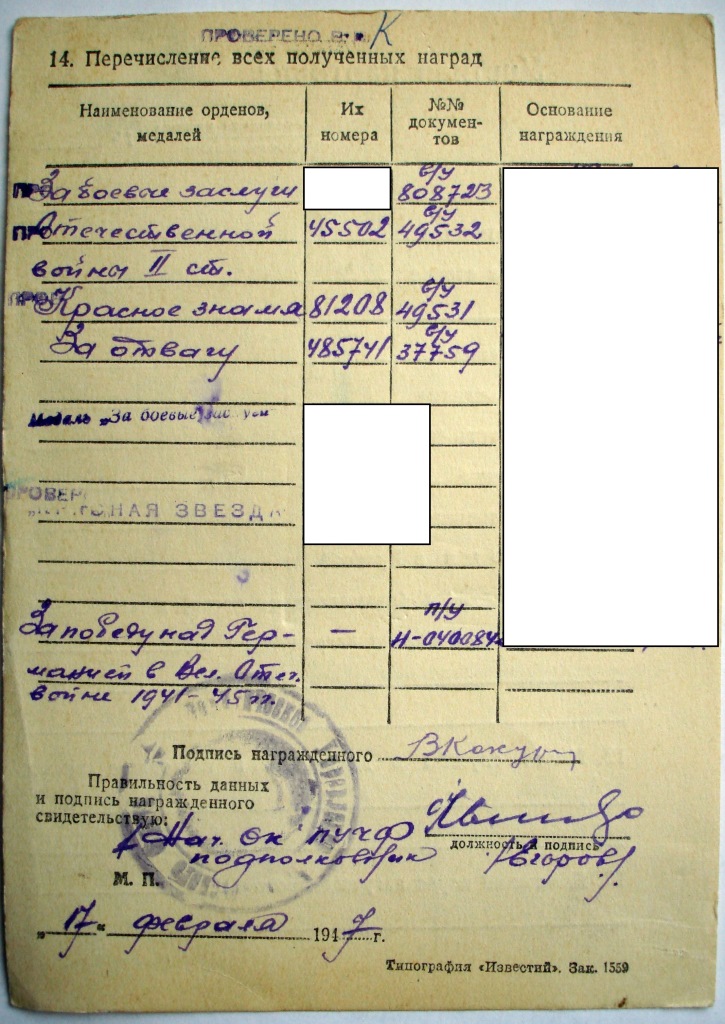 ПРОВЕРЕНО
14. Перечисление всех полученных наград
Наименование орденов, медалей
Их номера
№№ документов
Основание награждения
За боевые заслуги
с/у 808723
Отечественной 45502 с/у 49532
война II ст.
Красное знамя 81208 с/у 49531
За отвагу 485741 с/у 37759
Медаль „За боевые заслуги"
ПРОВЕР
„КРАСНАЯ ЗВЕЗДА
За победу над Гер- — п/у Н-040084
манией в Вел. Отеч.
войне 1941-45 гг.
Подпись награжденного
Правильность данных
и подпись награжденного
свидетельствую:
Нач. ОК
подполковник /Егоров/
должность и подпись
М. П.
„17" февраля 1947 г.
Типография «Известий». Зак. 1559